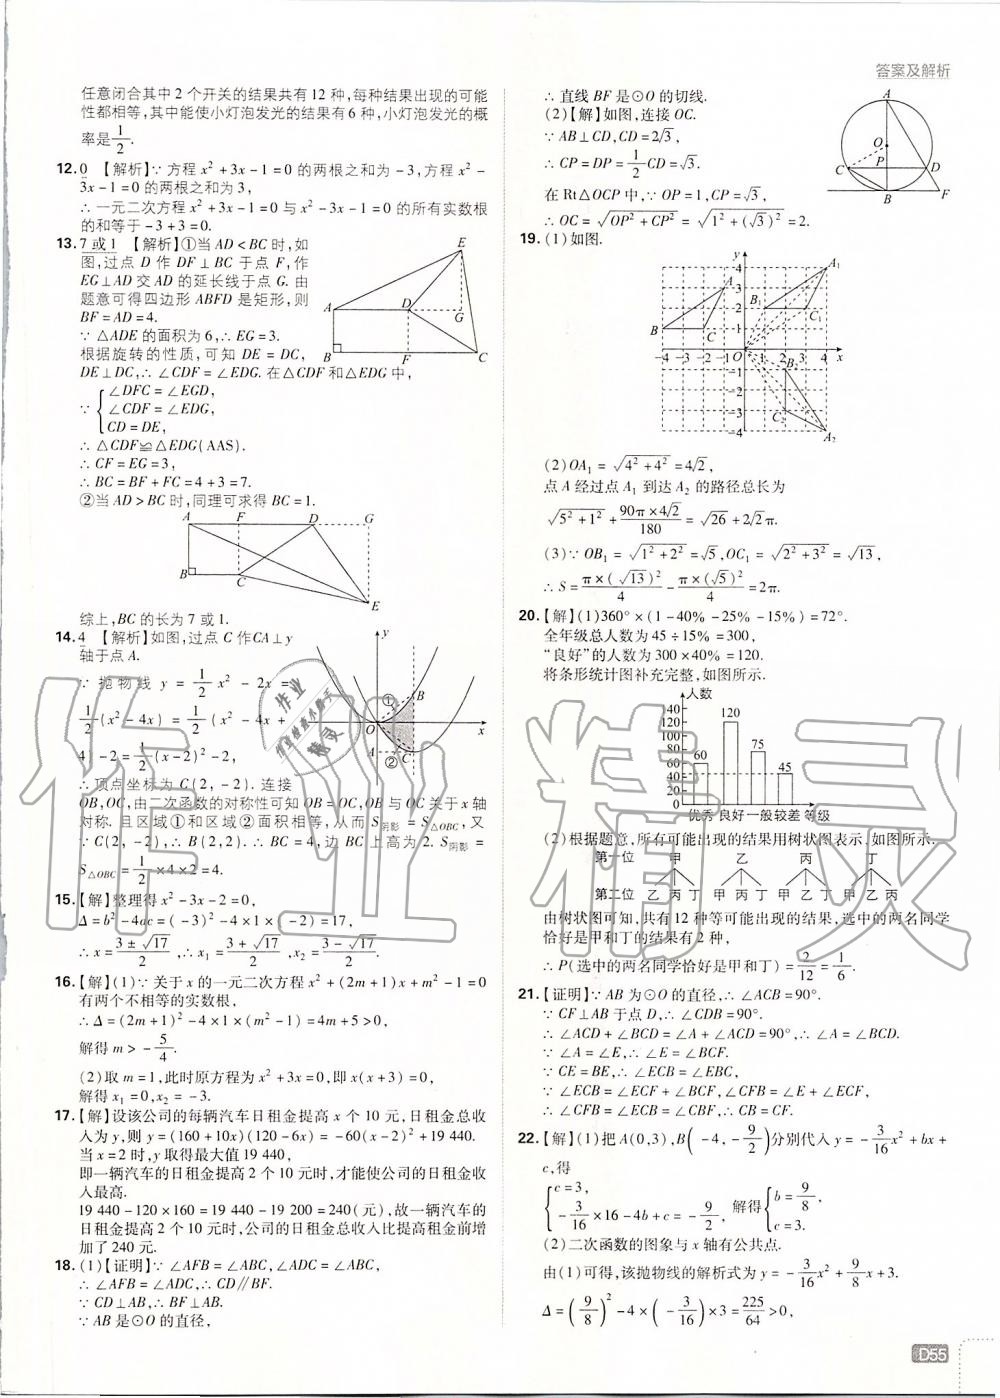 答案及解析
任意闭合其中2个开关的结果共有12种,每种结果出现的可能
性都相等,其中能使小灯泡发光的结果有6种,小灯泡发光的概
率是1/2.
12.0 【解析】∵方程x²+3x-1=0的两根之和为-3,方程x²-
3x-1=0的两根之和为3,
∴一元二次方程x²+3x-1=0与x²-3x-1=0的所有实数根
的和等于-3+3=0.
13.7或1 【解析】①当AD<BC时,如
图,过点D作DF⊥BC于点F,作
EG⊥AD交AD的延长线于点G.由
题意可得四边形ABFD是矩形,则
BF=AD=4.
∵△ADE的面积为6,∴EG=3.
根据旋转的性质,可知DE=DC,
DE⊥DC,∴∠CDF=∠EDG.在△CDF和△EDG中,
∵{∠DFC=∠EGD,
∠CDF=∠EDG,
CD=DE,
∴△CDF≌△EDG(AAS).
∴CF=EG=3,
∴BC=BF+FC=4+3=7.
②当AD>BC时,同理可求得BC=1.
A F D G
B C E
综上,BC的长为7或1.
14.4 【解析】如图,过点C作CA⊥y
轴于点A.
∵抛物线y=1/2x²-2x=
1/2(x²-4x)=1/2(x²-4x+
4)-2=1/2(x-2)²-2,
∴顶点坐标为C(2,-2).连接
OB,OC,由二次函数的对称性可知OB=OC,OB与OC关于x轴
对称.且区域①和区域②面积相等,从而S阴影=S△OBC,又
∵C(2,-2),∴B(2,2).∴BC=4,边BC上高为2.S阴影=
S△OBC=1/2×4×2=4.
15.【解】整理得x²-3x-2=0,
Δ=b²-4ac=(-3)²-4×1×(-2)=17,
∴x=(3±√17)/2,∴x₁=(3+√17)/2,x₂=(3-√17)/2.
16.【解】(1)∵关于x的一元二次方程x²+(2m+1)x+m²-1=0
有两个不相等的实数根,
∴Δ=(2m+1)²-4×1×(m²-1)=4m+5>0,
解得m>-5/4.
(2)取m=1,此时原方程为x²+3x=0,即x(x+3)=0,
解得x₁=0,x₂=-3.
17.【解】设该公司的每辆汽车日租金提高x个10元,日租金总收
入为y,则y=(160+10x)(120-6x)=-60(x-2)²+19 440.
当x=2时,y取得最大值19 440,
即一辆汽车的日租金提高2个10元时,才能使公司的日租金收
入最高.
19 440-120×160=19 440-19 200=240(元),故一辆汽车的
日租金提高2个10元时,公司的日租金总收入比提高租金前增
加了240元.
18.(1)【证明】∵∠AFB=∠ABC,∠ADC=∠ABC,
∴∠AFB=∠ADC,∴CD∥BF.
∵CD⊥AB,∴BF⊥AB.
∵AB是⊙O的直径,
∴直线BF是⊙O的切线.
(2)【解】如图,连接OC.
∵AB⊥CD,CD=2√3,
∴CP=DP=1/2CD=√3.
在Rt△OCP中,∵OP=1,CP=√3,
∴OC=√(OP²+CP²)=√(1²+(√3)²)=2.
19.(1)如图.
(2)OA₁=√(4²+4²)=4√2,
点A经过点A₁到达A₂的路径总长为
√(5²+1²)+90π×4√2/180=√26+2√2π.
(3)∵OB₁=√(1²+2²)=√5,OC₁=√(2²+3²)=√13,
∴S=π×(√13)²/4-π×(√5)²/4=2π.
20.【解】(1)360°×(1-40%-25%-15%)=72°.
全年级总人数为45÷15%=300,
“良好”的人数为300×40%=120.
将条形统计图补充完整,如图所示.
人数
120
75
60
45
优秀 良好 一般 较差 等级
(2)根据题意,所有可能出现的结果用树状图表示.如图所示.
第一位 甲 乙 丙 丁
第二位 乙 丙 丁 甲 丙 丁 甲 乙 丁 甲 乙 丙
由树状图可知,共有12种等可能出现的结果,选中的两名同学
恰好是甲和丁的结果有2种,
∴P(选中的两名同学恰好是甲和丁)=2/12=1/6.
21.【证明】∵AB为⊙O的直径,∴∠ACB=90°.
∵CF⊥AB于点D,∴∠CDB=90°.
∴∠ACD+∠BCD=∠A+∠ACD=90°,∴∠A=∠BCD.
∵∠A=∠E,∴∠E=∠BCF.
∵CE=BE,∴∠ECB=∠EBC,
∵∠ECB=∠ECF+∠BCF,∠CFB=∠E+∠ECF,
∴∠CFB=∠ECB=∠CBF,∴CB=CF.
22.【解】(1)把A(0,3),B(-4,-9/2)分别代入y=-3/16x²+bx+
c,得
{c=3,
-3/16×16-4b+c=-9/2, 解得{b=9/8,
c=3.
(2)二次函数的图象与x轴有公共点.
由(1)可得,该抛物线的解析式为y=-3/16x²+9/8x+3.
Δ=(9/8)²-4×(-3/16)×3=225/64>0,
D55
作业精灵